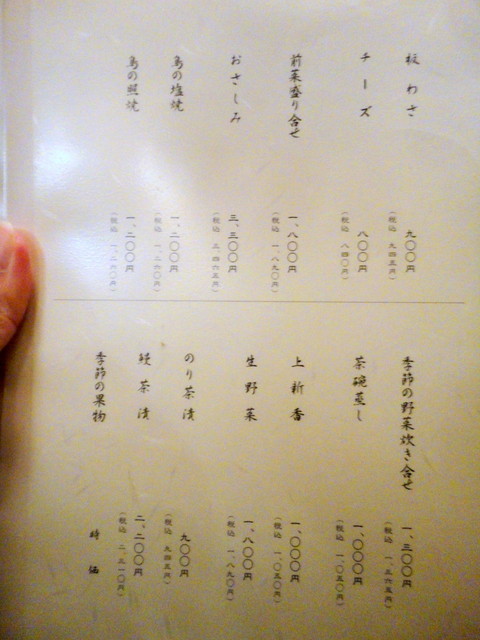 板わさ
九〇〇円
（税込 九四五円）
チーズ
八〇〇円
（税込 八四〇円）
前菜盛り合せ
一、八〇〇円
（税込 一、八九〇円）
おさしみ
三、三〇〇円
（税込 三、四六五円）
鳥の塩焼
一、二〇〇円
（税込 一、二六〇円）
鳥の照焼
一、二〇〇円
（税込 一、二六〇円）
季節の野菜炊き合せ
一、三〇〇円
（税込 一、三六五円）
茶碗蒸し
一、〇〇〇円
（税込 一、〇五〇円）
上新香
一、〇〇〇円
（税込 一、〇五〇円）
生野菜
一、八〇〇円
（税込 一、八九〇円）
のり茶漬
九〇〇円
（税込 九四五円）
鰻茶漬
二、二〇〇円
（税込 二、三一〇円）
季節の果物
時価